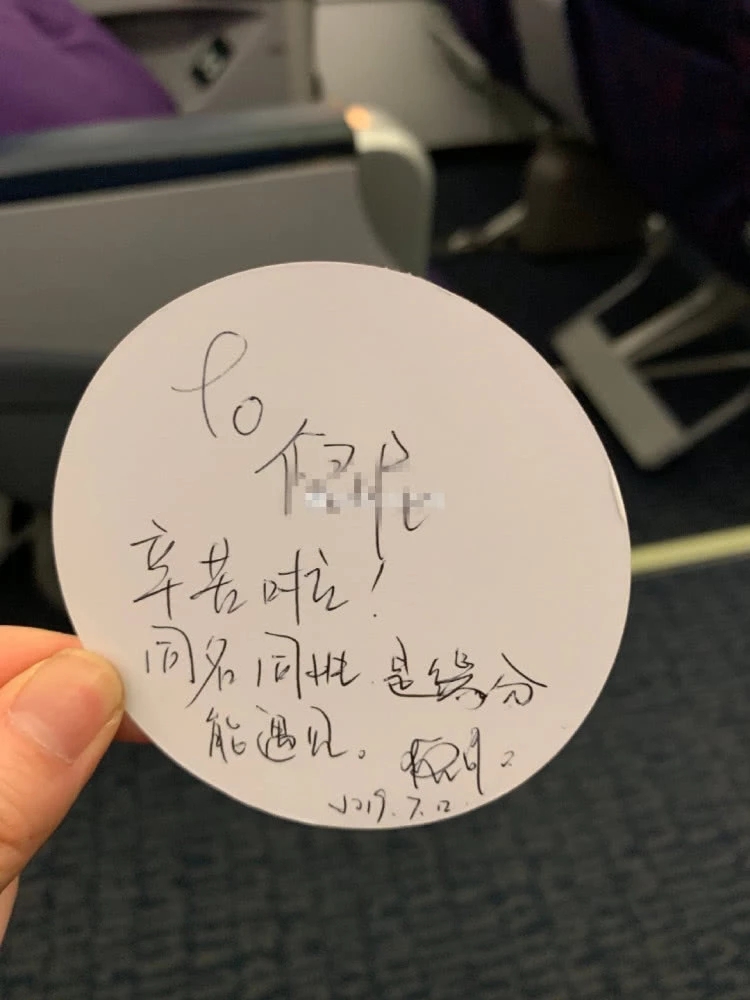 To
辛苦啦！
同名同姓是缘分
能遇见。
2019.7.12.